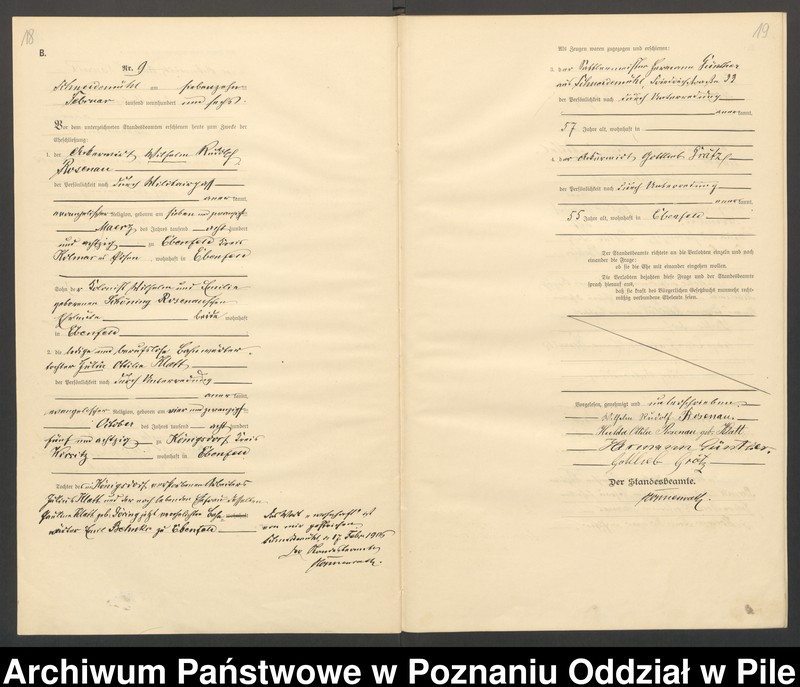 18
B.
Nr. 9
Schneidemühl am siebenzehn
Februar tausend neunhundert und sechs
Vor dem unterzeichneten Standesbeamten erschienen heute zum Zweck der
Eheschließung:
1. der Ackerwirt Wilhelm Rudolf
Rosenau
der Persönlichkeit nach durch Militairpaß
aner kannt,
evangelischer Religion, geboren am sieben und zwanzig
Maerz des Jahres tausend acht hundert
und achtzig zu Ebenfeld Kreis
Kolmar in Posen, wohnhaft in Ebenfeld
Sohn des Kolonist Wilhelm und Emilie
geborenen Rosenauschen
Eheleute beide wohnhaft
in Ebenfeld
2. die ledige und berufslose
tochter Ottilie Klatt
der Persönlichkeit nach durch Unterredung
aner kannt,
evangelischer Religion, geboren am vier und zwanzig
October des Jahres tausend acht hundert
fünf und achtzig zu Königsdorf Kreis
Wirsitz wohnhaft in Ebenfeld
Tochter des in Königsdorf verstorbenen Arbeiters
Julius Klatt und der noch lebenden Ehefrau desselben
Pauline Klatt geb. Döring jetzt verehelichte
wärter Emil zu Ebenfeld
Das Wort „wohnhaft" ist
von mir gestrichen.
Schneidemühl, d. 17. Febr. 1906
Der Standesbeamte
19
Als Zeugen waren zugezogen und erschienen:
3. der Sattlermeister Hermann Günther
aus Schneidemühl Friedrichstraße 33
der Persönlichkeit nach durch Unterredung
aner kannt,
57 Jahre alt, wohnhaft in
4. der Ackerwirt Gottlieb Grötz
der Persönlichkeit nach durch Unterredung
aner kannt,
55 Jahre alt, wohnhaft in Ebenfeld
Der Standesbeamte richtete an die Verlobten einzeln und nach
einander die Frage:
ob sie die Ehe mit einander eingehen wollen.
Die Verlobten bejahten diese Frage und der Standesbeamte
sprach hierauf aus,
daß sie kraft des Bürgerlichen Gesetzbuchs nunmehr recht-
mäßig verbundene Eheleute seien.
Vorgelesen, genehmigt und unterschrieben
Wilhelm Rudolf Rosenau.
Ottilie Rosenau geb. Klatt
Hermann Günther.
Gottlieb Grötz
Der Standesbeamte.
Archiwum Państwowe w Poznaniu Oddział w Pile